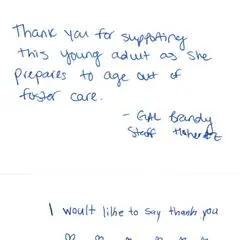 Thank you for supporting
this young adult as she
prepares to age out of
foster care.
- GAL Brandy
Staff
I woult like to say thank you